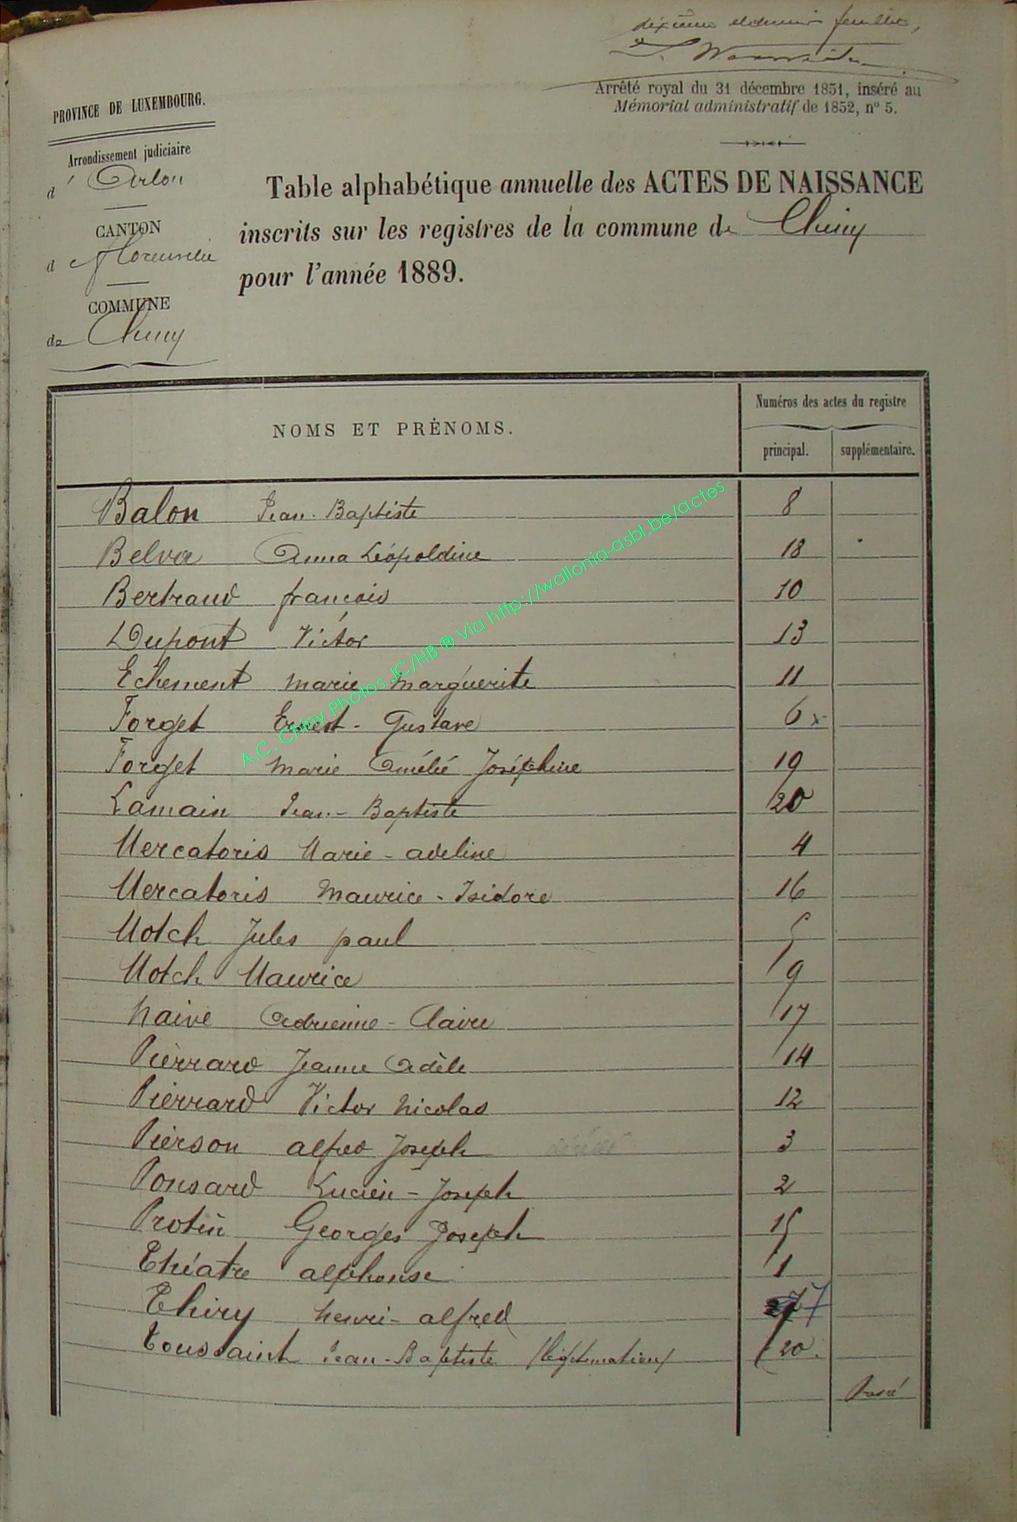 dixième et dernier feuillet,
Arrêté royal du 31 décembre 1851, inséré au
Mémorial administratif de 1852, n° 5.
PROVINCE DE LUXEMBOURG.
Arrondissement judiciaire
d' Arlon
CANTON
d Florenville
COMMUNE
de Chiny
Table alphabétique annuelle des ACTES DE NAISSANCE
inscrits sur les registres de la commune de Chiny
pour l'année 1889.
NOMS ET PRÉNOMS.
Numéros des actes du registre
principal. supplémentaire.
Balon Jean-Baptiste 8
Belva Anna Léopoldine 18
Bertrand françois 10
Dupont Victor 13
Echement Marie Marguerite 11
Forget Ernest-Gustave 6 x
Forget Marie Amélie Joséphine 19
Lamain Jean-Baptiste 20
Mercatoris Marie-adeline 4
Mercatoris Maurice-Isidore 16
Motch Jules paul 5
Motch Maurice 9
Naive Adrienne-Claire 17
Pierrard Jeanne Adèle 14
Pierrard Victor Nicolas 12
Pierson alfred Joseph décédé 3
Ponsard Lucien-Joseph 2
Protin Georges Joseph 15
Théatre alphonse 1
Thiry henri-alfred 7
Toussaint Jean-Baptiste (légitimation) 20
A.C. Chiny Photos JC/HB ® via http://wallonia-asbl.be/actes